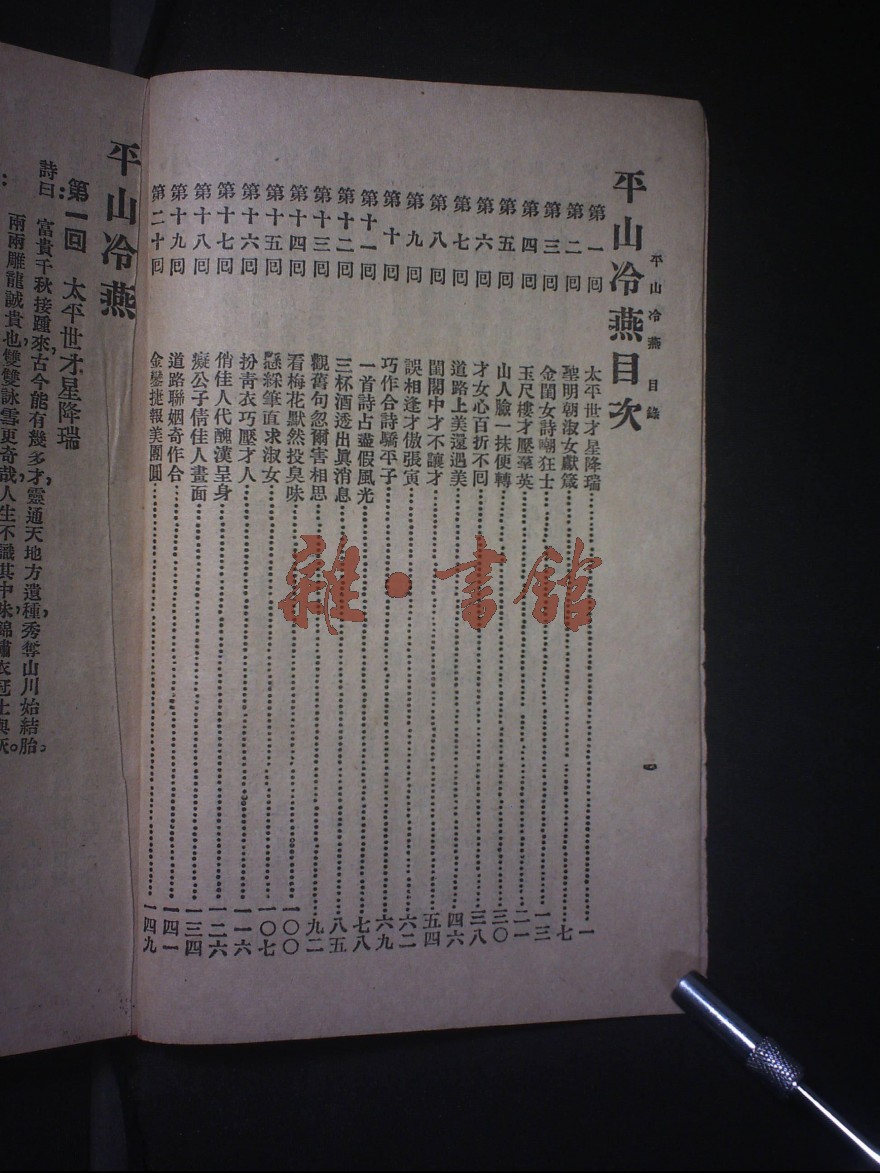 平山冷燕目錄
平山冷燕目次
第一回 太平世才星降瑞 一
第二回 聖明朝淑女獻箴 七
第三回 金閨女詩嘲狂士 一三
第四回 玉尺樓才壓羣英 二一
第五回 山人臉一抹便轉 三〇
第六回 才女心百折不回 三八
第七回 道路上美還遇美 四六
第八回 閨閣中才不讓才 五四
第九回 誤相逢才傲張寅 六二
第十回 巧作合詩驕平子 六九
第十一回 一首詩占盡假風光 七八
第十二回 三杯酒透出眞消息 八五
第十三回 觀舊句忽爾害相思 九二
第十四回 看梅花默然投臭味 一〇〇
第十五回 懸綵筆直求淑女 一〇七
第十六回 扮靑衣巧壓才人 一一六
第十七回 俏佳人代醜漢呈身 一二六
第十八回 癡公子倩佳人畫面 一三四
第十九回 道路聯姻奇作合 一四一
第二十回 金鑾捷報美團圓 一四九
一
平山冷燕
第一回 太平世才星降瑞
詩曰: 富貴千秋接踵來,古今能有幾多才,靈通天地方遺種,秀奪山川始結胎。
兩兩雕龍誠貴也,雙雙詠雪更奇哉,人生不識其中味,錦繡衣冠土與灰。
雜·書館